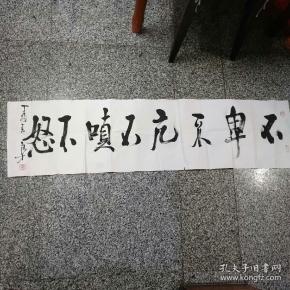 不卑不亢不嗔不怒
孔夫子旧书网